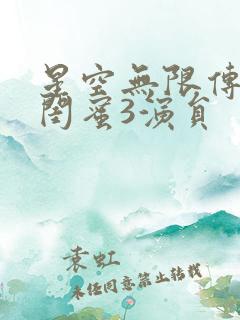 星空無限傳
閨蜜3-演員
袁虹
未经同意禁止转载